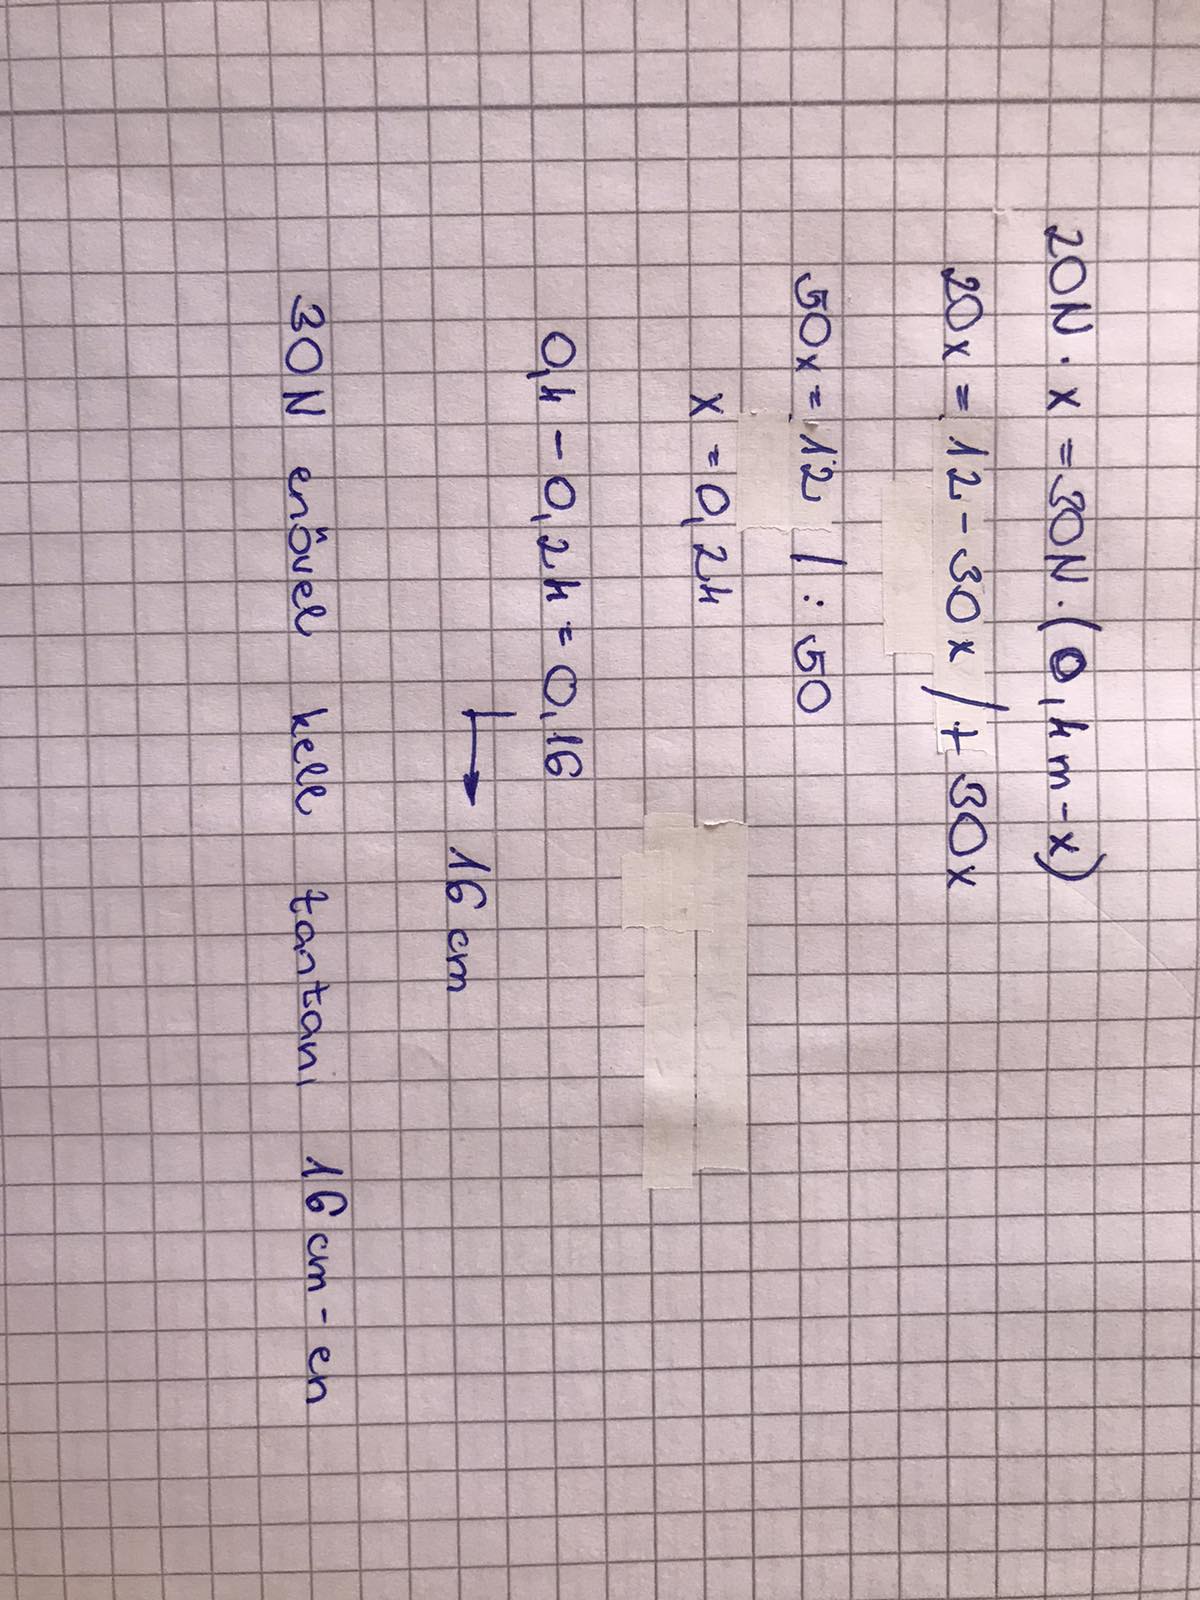 20N · x = 30N · (0,4m - x)
20x = 12 - 30x / + 30x
50x = 12 / : 50
x = 0,24
0,4 - 0,24 = 0,16
16 cm
30N erővel kell tartani 16 cm-en